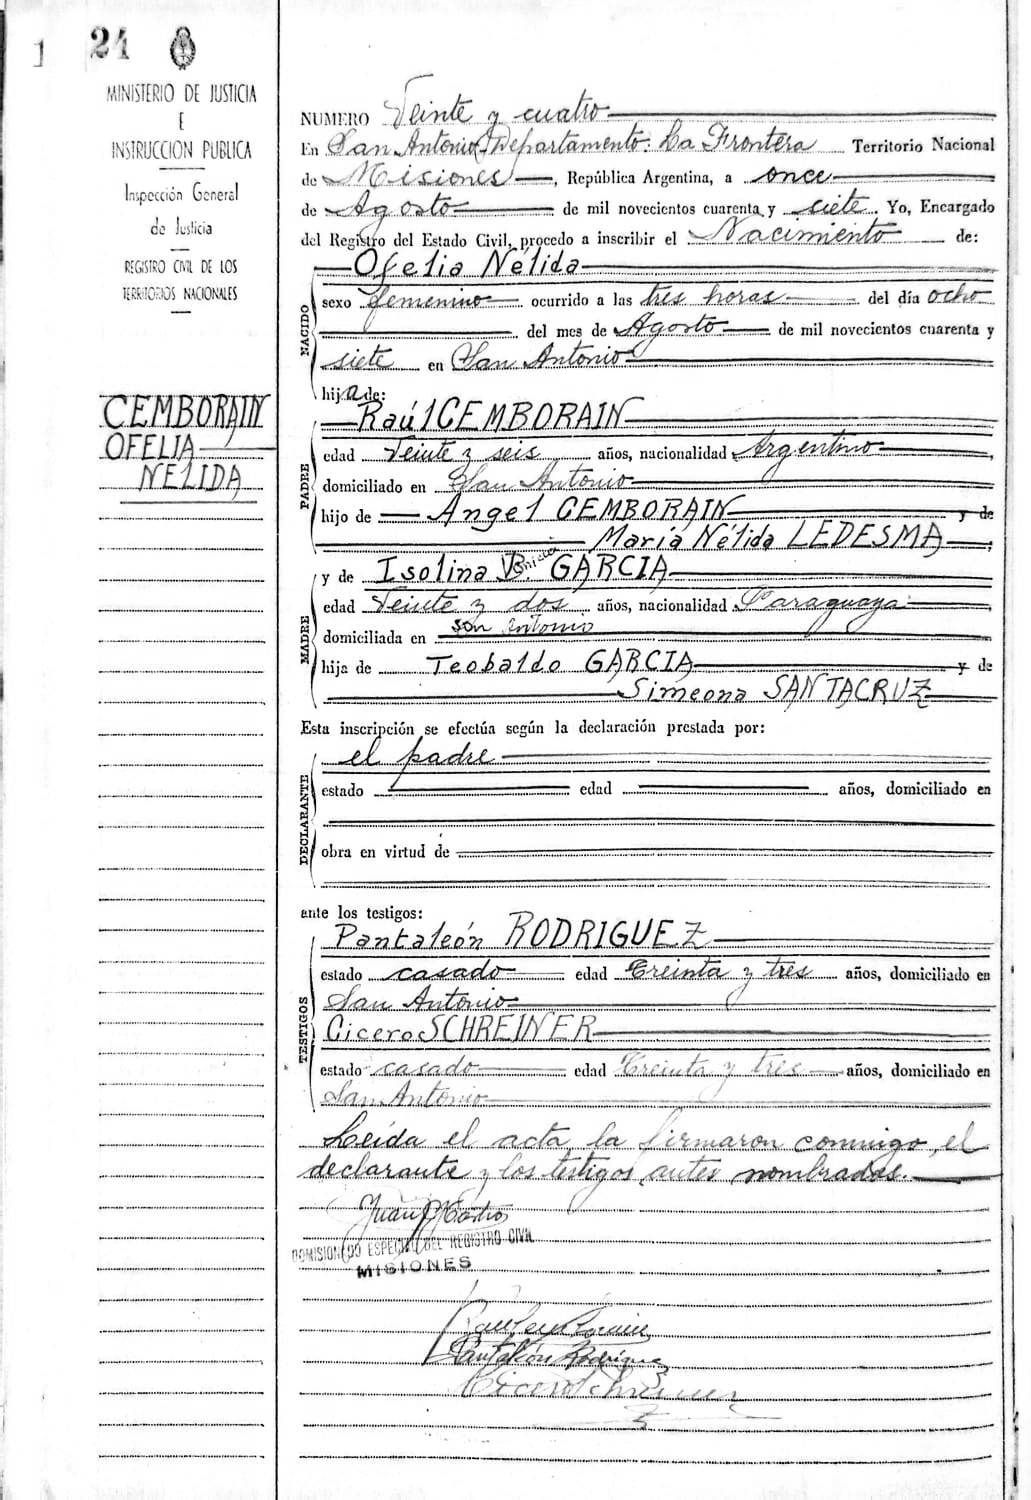 1
24
MINISTERIO DE JUSTICIA
E
INSTRUCCION PUBLICA
Inspección General
de Justicia
REGISTRO CIVIL DE LOS
TERRITORIOS NACIONALES
CEMBORAIN
OFELIA
NELIDA
NUMERO Veinte y cuatro
En San Antonio, Departamento: La Frontera Territorio Nacional
de Misiones, República Argentina, a once
de Agosto de mil novecientos cuarenta y siete. Yo, Encargado
del Registro del Estado Civil, procedo a inscribir el Nacimiento de:
NACIDO
Ofelia Nélida
sexo femenino ocurrido a las tres horas del día ocho
del mes de Agosto de mil novecientos cuarenta y
siete en San Antonio
hija de:
PADRE
Raúl CEMBORAIN
edad Veinte y seis años, nacionalidad Argentino,
domiciliado en San Antonio
hijo de Angel CEMBORAIN y de
María Nélida LEDESMA;
MADRE
y de Isolina GARCIA
edad Veinte y dos años, nacionalidad Paraguaya,
domiciliada en san Antonio
hija de Teobaldo GARCIA y de
Simeona SANTACRUZ
Esta inscripción se efectúa según la declaración prestada por:
DECLARANTE
el padre
estado edad años, domiciliado en
obra en virtud de
ante los testigos:
TESTIGOS
Pantaleón RODRIGUEZ
estado casado edad Treinta y tres años, domiciliado en
San Antonio
Cicero SCHREINER
estado casado edad Treinta y tres años, domiciliado en
San Antonio
Leída el acta, la firmaron conmigo, el
declarante y los testigos antes nombrados.
Juan
COMISIONADO ESPECIAL DEL REGISTRO CIVIL
MISIONES
Pantaleón Rodriguez
Cicero Schreiner